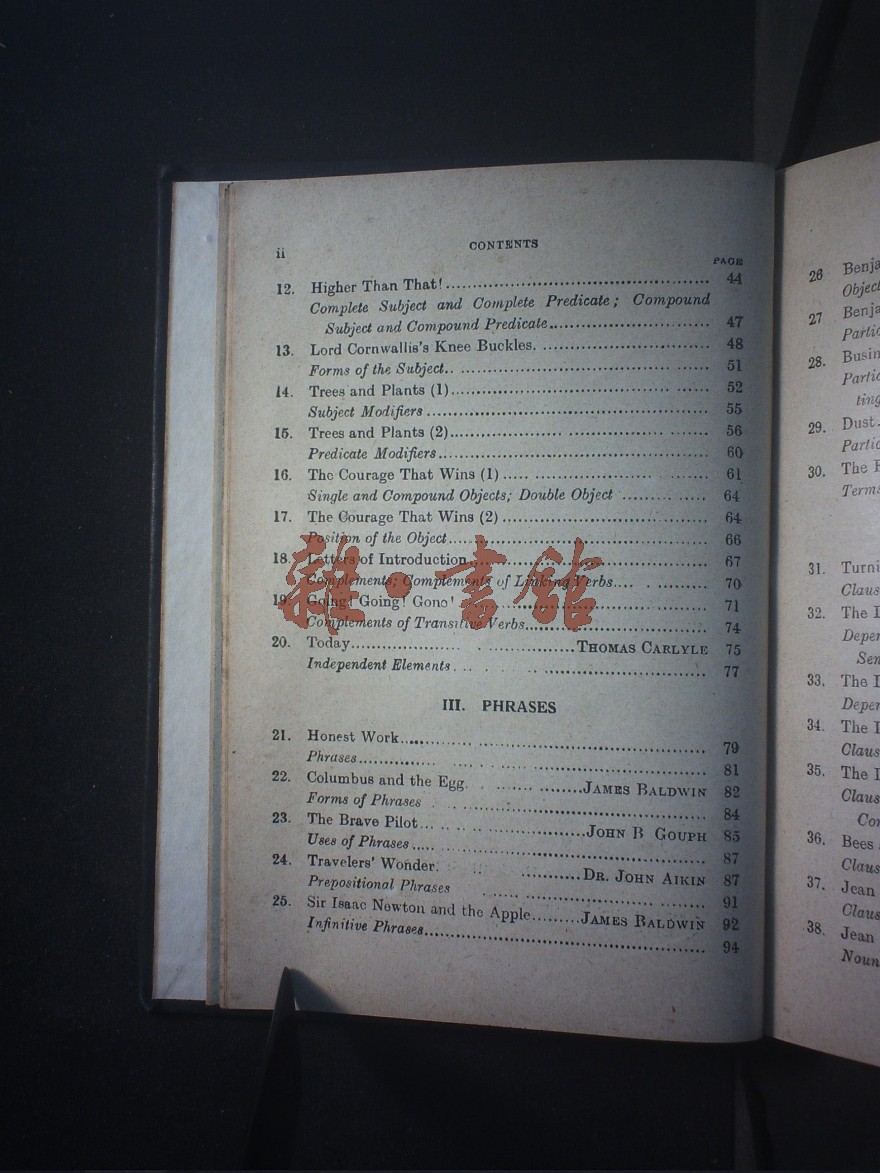 ii CONTENTS
PAGE
12. Higher Than That! 44
Complete Subject and Complete Predicate; Compound
Subject and Compound Predicate 47
13. Lord Cornwallis's Knee Buckles. 48
Forms of the Subject 51
14. Trees and Plants (1) 52
Subject Modifiers 55
15. Trees and Plants (2) 56
Predicate Modifiers 60
16. The Courage That Wins (1) 61
Single and Compound Objects; Double Object 64
17. The Courage That Wins (2) 64
Position of the Object 66
18. Letters of Introduction 67
Complements; Complements of Linking Verbs 70
19. Going! Going! Gone! 71
Complements of Transitive Verbs 74
20. Today THOMAS CARLYLE 75
Independent Elements 77
III. PHRASES
21. Honest Work 79
Phrases 81
22. Columbus and the Egg JAMES BALDWIN 82
Forms of Phrases 84
23. The Brave Pilot JOHN B GOUPH 85
Uses of Phrases 87
24. Travelers' Wonder. DR. JOHN AIKIN 87
Prepositional Phrases 91
25. Sir Isaac Newton and the Apple JAMES BALDWIN 92
Infinitive Phrases 94
雜·書館
26
27
28.
29. Dust
30. The
Terms
31.
32. The
33. The
34. The
35. The
36. Bees
37. Jean
38. Jean
Noun